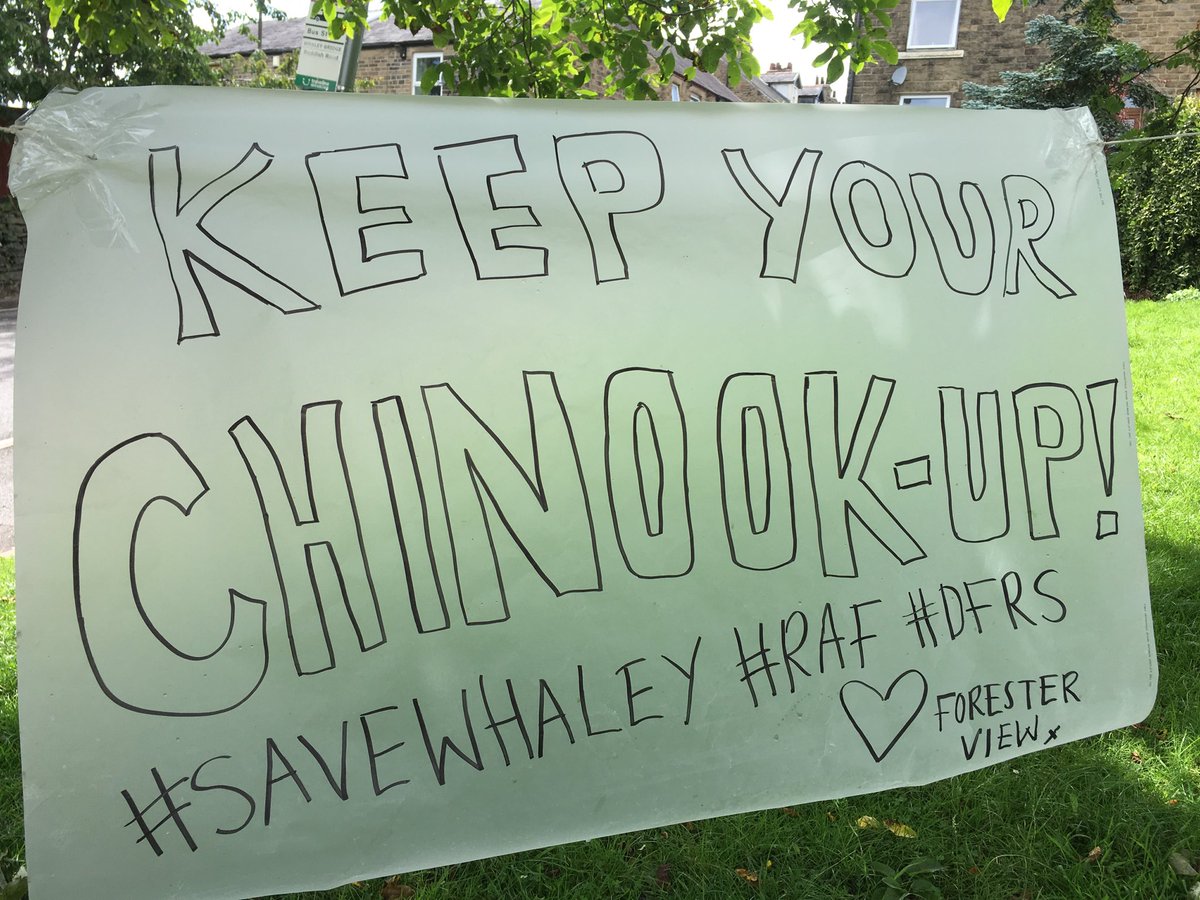 Bus St
WHALEY BRIDGE
KEEP YOUR
CHINOOK-UP!
#SAVEWHALEY #RAF #DFRS
♡ FORESTER
VIEW x